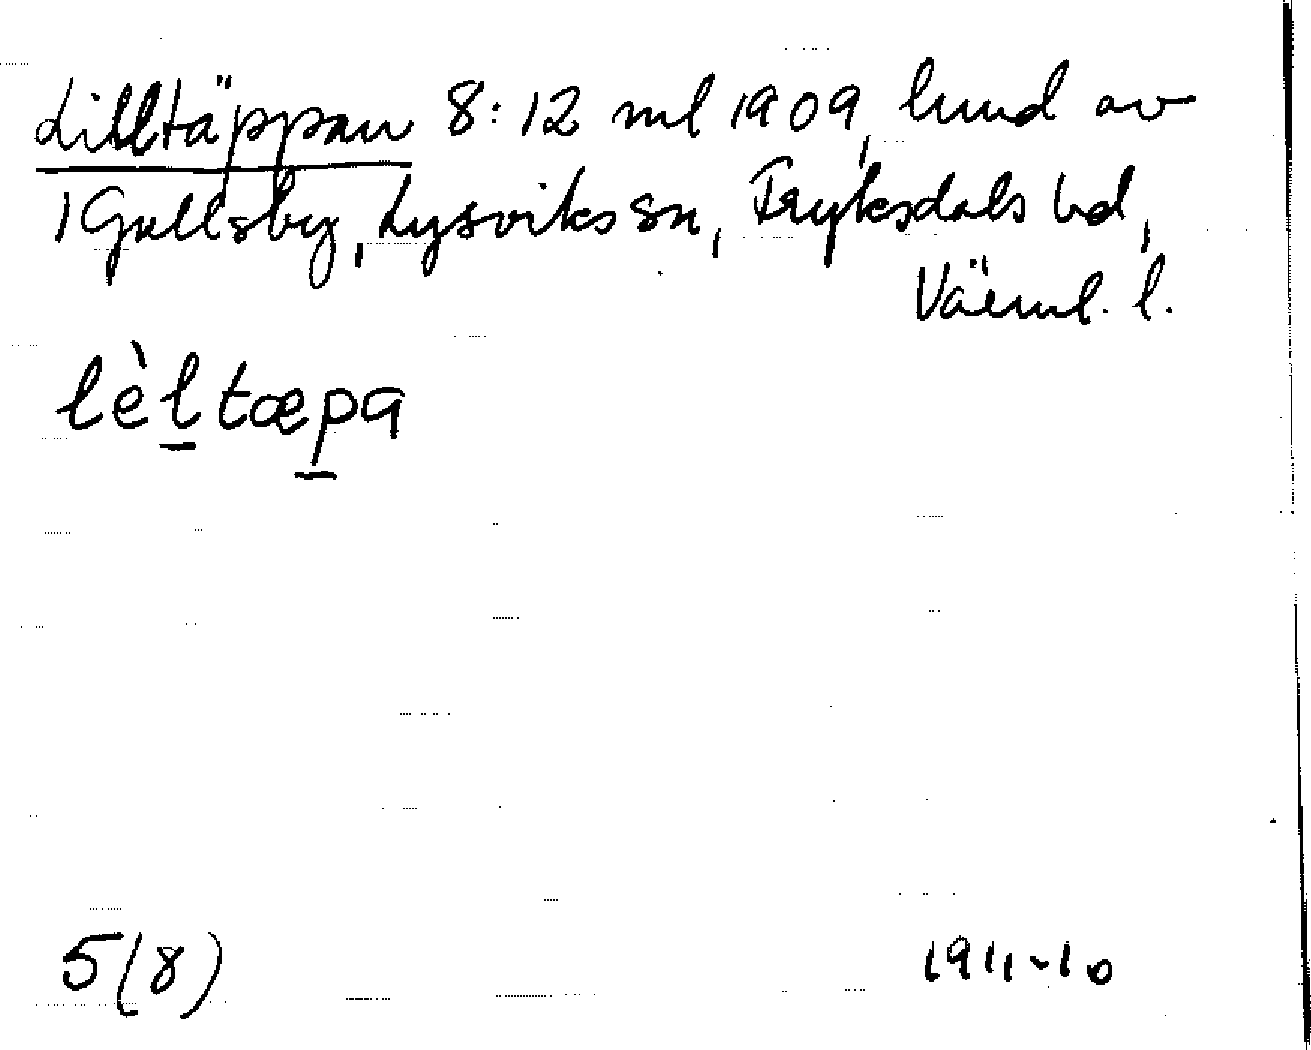 Lilltäppan 8:12 ml 1909, lund av
1 Gullsby, Lysviks sn, Fryksdals hd,
Värml. l.
lèltæpa
5(8)
1911-10